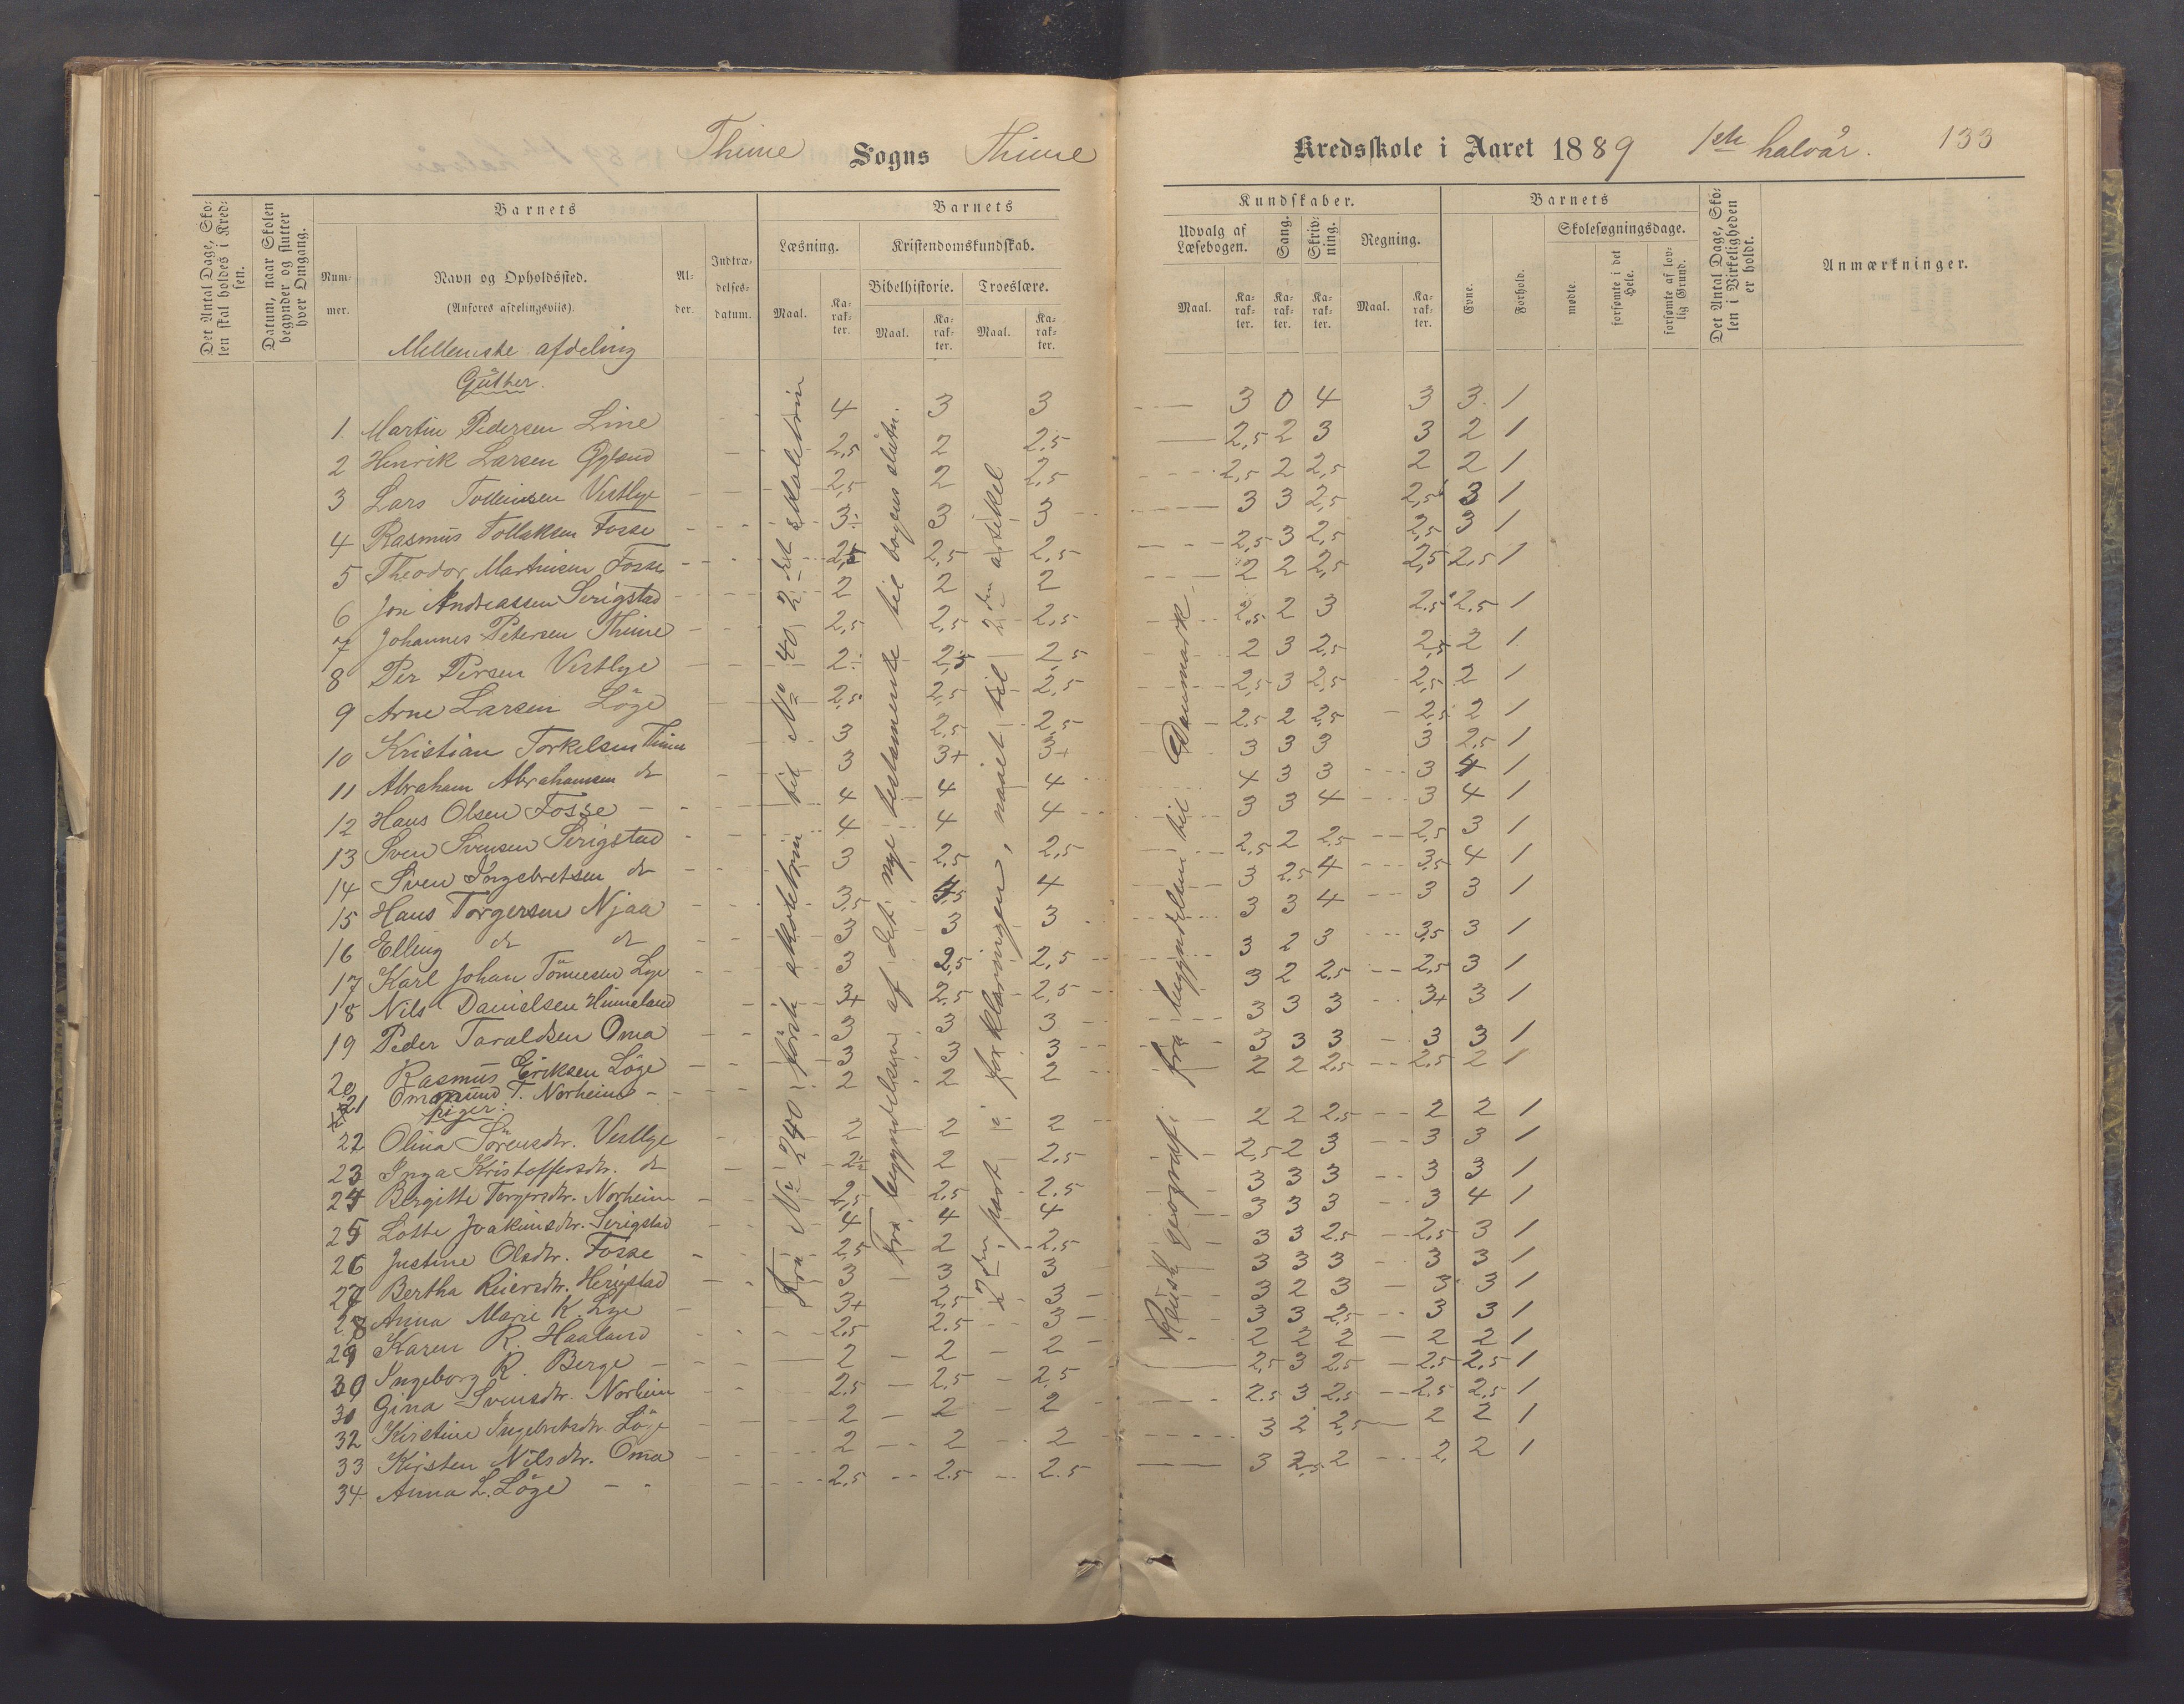 Thime Sogns Thime Kredsskole i Aaret 1889 1ste halvår. 133
Det Antal Dage, Skolen skal holdes i Kredsen.
Datum, naar Skolen begynder og slutter hver Omgang.
Barnets
Nummer.
Navn og Opholdssted.
(Anføres afdelingsviis).
Alder.
Indtrædelsesdatum.
Barnets
Læsning.
Kristendomskundskab.
Bibelhistorie. Troeslære.
Maal. Karakter. Maal. Karakter. Maal. Karakter.
Kundskaber.
Udvalg af Læsebogen. Sang. Skrivning. Regning.
Maal. Karakter. Karakter. Karakter. Maal. Karakter.
Barnets
Evne. Forhold.
Skolesøgningsdage.
mødte. forsømte i det Hele. forsømte af lovlig Grund.
Det Antal Dage, Skolen i Virkeligheden er holdt.
Anmærkninger.
Mellemste afdeling
Gutter.
1. Martin Pedersen Line 4 3 3 3 0 4 3 3 1
2 Henrik Larsen 2,5 2 2,5 2,5 2 3 3 2 1
3 Lars Tolleivsen Vestlye 2,5 2 2,5 2,5 2 2,5 2 2 1
4 Rasmus Tollaksen Fosse 3 3 3 3 3 2,5 2,5 3 1
5 Theodor Martinsen Fosse 2,5 2,5 2,5 2,5 3 2,5 2,5 3 1
6 Jon Andreassen Serigstad 2 2 2 2 2 2,5 2,5 2,5 1
7 Johannes Petersen Thime 2,5 2,5 2,5 2,5 2 3 2,5 2,5 1
8 Per Persen Vestlye 2 2,5 2,5 2 3 2,5 2,5 2 1
9 Arne Larsen Löge 2,5 2,5 2,5 2,5 3 2,5 2,5 2 1
10 Kristian Torkelsen Thime 3 2,5 2,5 2,5 2 2,5 2,5 2 1
11 Abraham Abrahamsen do 3 3+ 3+ 3 3 3 3 2,5 1
12 Hans Olsen Fosse 4 4 4 4 3 3 3 4 1
13 Sven Svensen Serigstad 4 4 4 3 3 4 3 4 1
14 Sven Ingebretsen do 3 2,5 2,5 2,5 2 2,5 2,5 3 1
15 Hans Torgersen Njaa 3,5 4 3 2,5 4 3,5 4 1
16 Elling do do 3 3 3 3 3 4 3 3 1
17 Karl Johan Tönnesen Lye 3 2,5 2,5 3 2 3 3,5 3 1
18 Nils Danielsen Hinnaland 3+ 2,5 2,5 3 2 2,5 2,5 3 1
19 Peder Taraldsen Oma 3 3 3 3 3 3 3+ 3 1
20 Rasmus Eriksen Löge 3 3 3 3 3 3 3 3 1
21 Ommund T. Norheim 2 2 2 2 2 2,5 2,5 2 1
piger:
22 Olina Sörensdtr. Vestlye 2 2 2 2 2 2,5 2 2 1
23 Inga Kristoffersdtr. do 2 2 2,5 2,5 2 3 3 3 1
24 Bergitte Torgersdtr. Norheim 2,5 2,5 2,5 3 3 3 3 3 1
25 Lotte Joakimsdtr. Serigstad 4 4 4 3 3 3 3 4 1
26 Justine Olsdtr. Fosse 2,5 2 2,5 3 3 2,5 2,5 3 1
27 Bertha Reiersdtr. 3 3 3 3 3 3 3 3 1
28 Anna Marie K. Lye 3+ 2,5 3 3 2 3 3 3 1
29 Karen R. Haaland 2,5 2,5 3 3 3 2,5 3 3 1
30 Ingeborg R. Berge 2 2 2 2 2 2 2 2 1
31 Gina Svensdtr. Norheim 2,5 2,5 2,5 2,5 3 2,5 2,5 2,5 1
32 Kirstine Ingebretsdtr. Löge 2 2 2 2,5 3 2,5 2,5 2,5 1
33 Kirsten Nilsdtr. Oma 2 2 2 3 2 2,5 2 2 1
34 Anna L. Löge 2,5 2,5 2,5 3 2,5 2 2 2 1
Fra No 240 förste skoletrin til No 40 2det skoletrin
Fra begyndelsen af det nye testamente til bogens slutn.
2den part i forklaringen, naaet til 2den artikel
Kaush geografi: fra begyndelsen til Danmark.